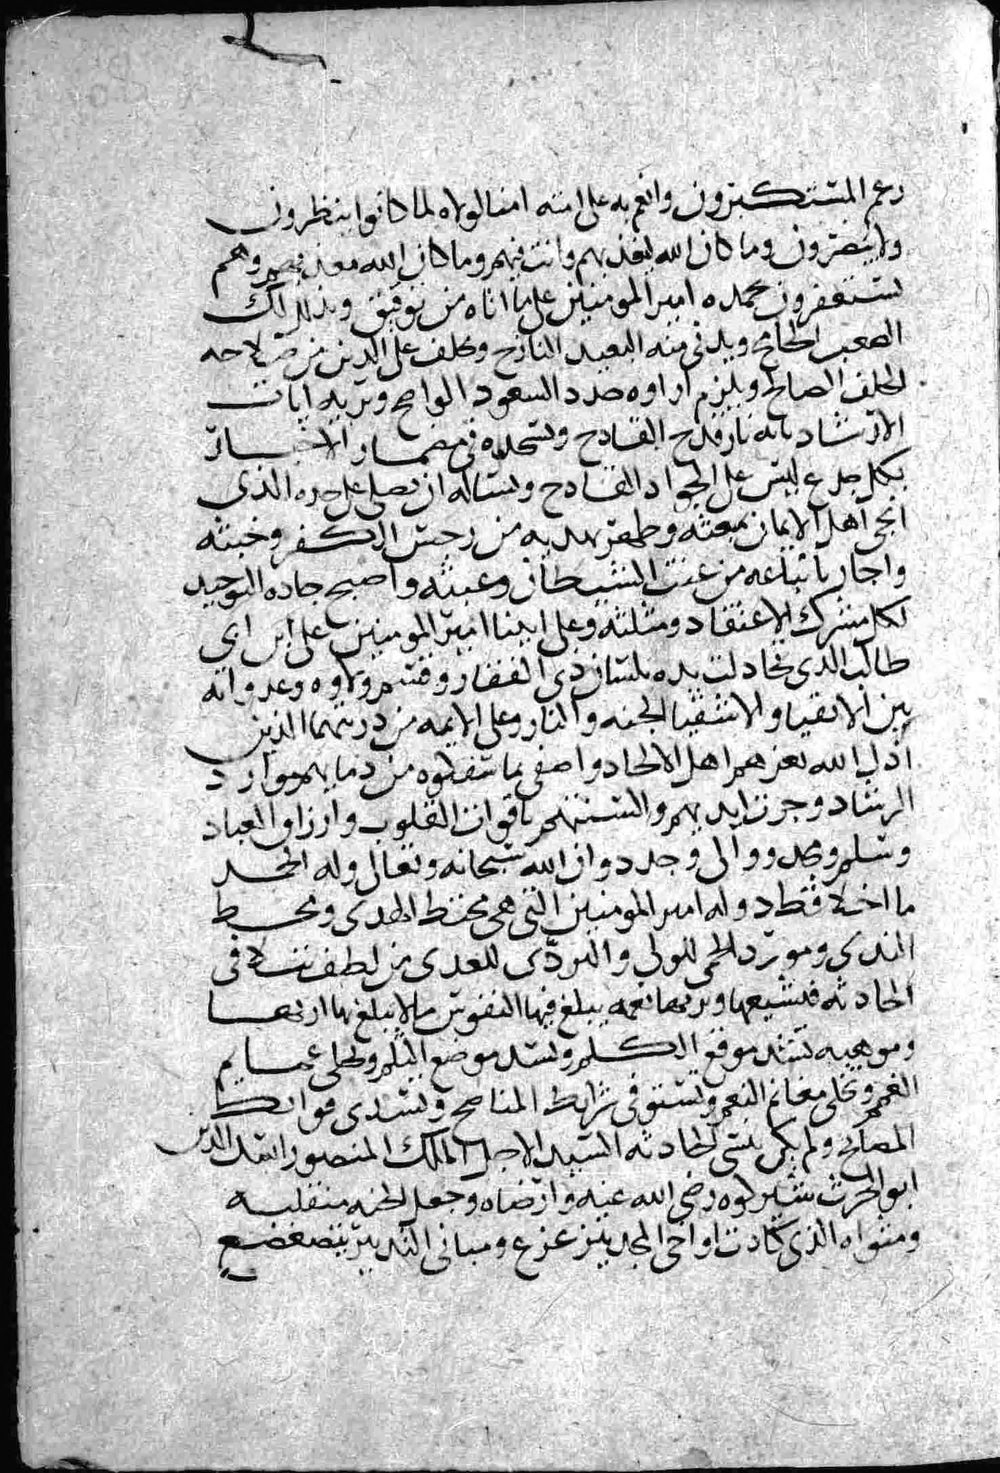 رغم المستكبرون وانعم به على امته امنا لولاه لما كانوا ينظرون
ولا ينصرون وما كان الله ليعذبهم وانت فيهم وما كان الله معذبهم وهم
يستغفرون يحمده امير المومنين على ما اتاه من توفيق وبذلل له
الصعب الجامح ويدنى منه البعيد النازح ويخلف على الدين من صلاحه
الخلف الصالح ويلزم اراوه جدد السعود الواضح وتريه ايات
الارشاد بانه نار قدح القادح
بكل جذع ليس على الجواد القارح ويساله ان يصلى على جده الذى
انجى اهل الايمان ببعثه وطهر بهديه من رجس الكفر وخبثه
واجار باتباعه من عنت الشيطان وعبثه واصبح جاده التوحيد
لكل مشرك الاعتقاد ومثلثه وعلى ابينا امير المومنين على ابن ابى
طالب الذى جادلت يده بلسان ذى الفقار وقسم ولاوه وعداوته
بين الاتقيا والاشقيا الجنه والنار وعلى الايمه من ذريتهما الذين
اذل الله بعزهم اهل الالحاد واصفى بما سفكوه من دمايهم موارد
الرشاد وجرت ايديهم والسنتهم باقوات القلوب وارزاق العباد
وسلم ومجد ووالى وجدد وان الله سبحانه وتعالى وله الحمد
ما اخلا قط دوله امير المومنين التى هى مخيط الهدى ومحط
الندى ومورد الحمى للولى والردى للعدى من لطف يتلافى
الحادثه فيشيعها ونعمه يبلغ فيها النفوس ما لا يبلغ بها اربها
وموهبه تشد موقع الكلم وتسد موضع الثلم وتجلى غمايم
الغمم وتحلى مغانم النعم وتستوفى شرايط المناجح وتستدنى فوارط
المصالح ولم يكن ينسى الحادثه السيد الاجل الملك المنصور اسد الدين
ابو الحرث شيركوه رضى الله عنه وارضاه وجعل الجنه منقلبه
ومثواه الذى كادت اواخى المجد تتزعزع ومبانى التدبير تتضعضع